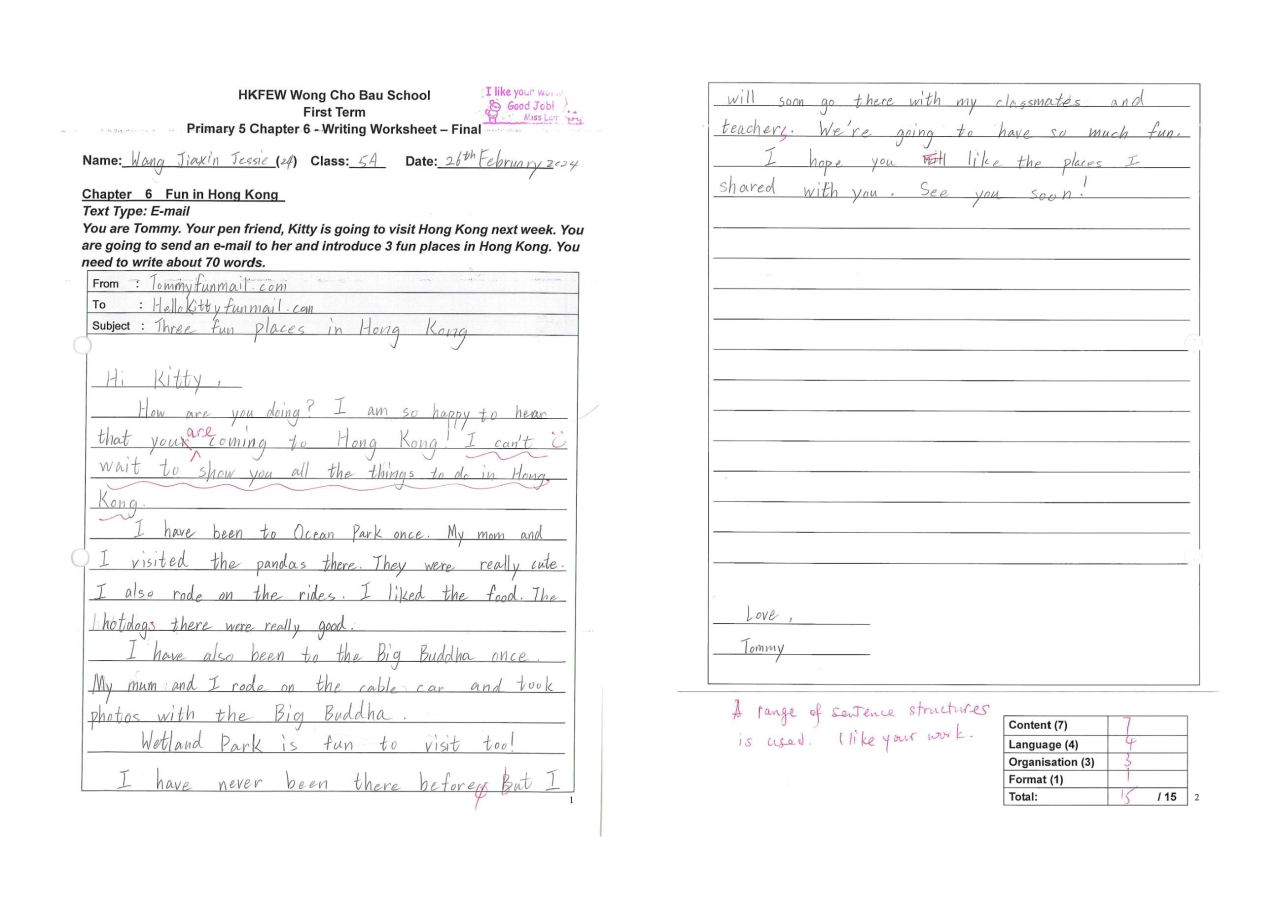 HKFEW Wong Cho Bau School
First Term
Primary 5 Chapter 6 - Writing Worksheet – Final
I like your
Good Job!
Miss
Name: Wang Jiaxin Jessie (24) Class: 5A Date: 26th February 2024
Chapter 6 Fun in Hong Kong
Text Type: E-mail
You are Tommy. Your pen friend, Kitty is going to visit Hong Kong next week. You
are going to send an e-mail to her and introduce 3 fun places in Hong Kong. You
need to write about 70 words.
From : Tommyfunmail.com
To : Hellokittyfunmail.com
Subject : Three fun places in Hong Kong
Hi Kitty,
How are you doing? I am so happy to hear
that you are coming to Hong Kong! I can't
wait to show you all the things to do in Hong
Kong.
I have been to Ocean Park once. My mom and
I visited the pandas there. They were really cute.
I also rode on the rides. I liked the food. The
hotdogs there were really good.
I have also been to the Big Buddha once.
My mum and I rode on the cable car and took
photos with the Big Buddha.
Wetland Park is fun to visit too!
I have never been there before, But I
1
will soon go there with my classmates and
teachers. We're going to have so much fun.
I hope you like the places I
shared with you. See you soon!
Love,
Tommy
A range of sentence structures
is used. I like your work.
Content (7) 7
Language (4) 4
Organisation (3) 3
Format (1) 1
Total: 15 / 15
2